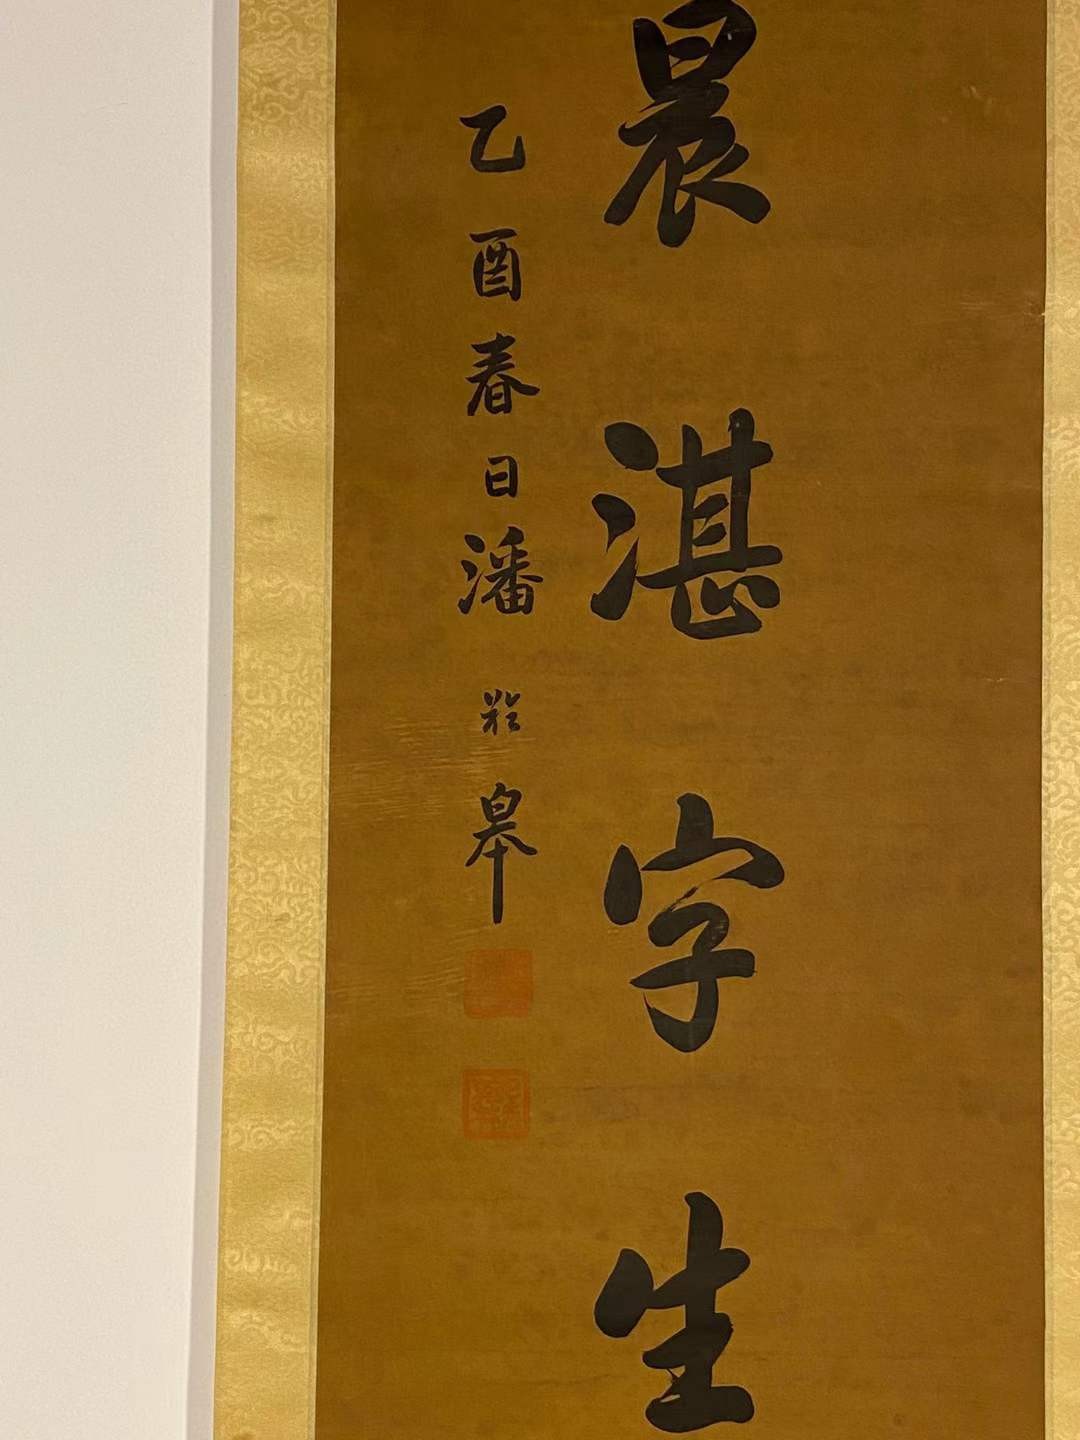 晨湛字生
乙酉春日潘齡皋